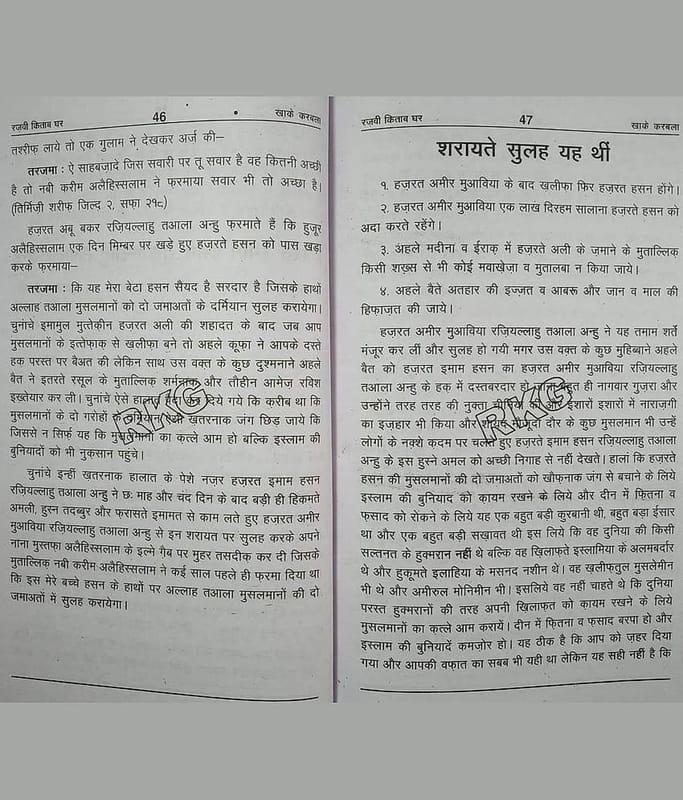 रज़वी किताब घर
46
खाके करबला
तशरीफ़ लाये तो एक गुलाम ने देखकर अर्ज की–
तरजमा : ऐ साहबज़ादे जिस सवारी पर तू सवार है वह कितनी अच्छी
है तो नबी करीम अलैहिस्सलाम ने फ़रमाया सवार भी तो अच्छा है।
(तिर्मिज़ी शरीफ जिल्द २, सफ़ा २१८)
हज़रत अबू बकर रज़ियल्लाहु तआला अन्हु फ़रमाते हैं कि हुजूर
अलैहिस्सलाम एक दिन मिम्बर पर खड़े हुए हज़रते हसन को पास खड़ा
करके फ़रमाया–
तरजमा : कि यह मेरा बेटा हसन सैयद है सरदार है जिसके हाथों
अल्लाह तआला मुसलमानों को दो जमाअतों के दर्मियान सुलह करायेगा।
चुनांचे इमामुल मुत्तेकीन हज़रत अली की शहादत के बाद जब आप
मुसलमानों के इत्तेफ़ाक़ से खलीफ़ा बने तो अहले कूफ़ा ने आपके दस्ते
हक परस्त पर बैअत की लेकिन साथ उस वक्त के कुछ दुश्मनाने अहले
बैत ने इतरते रसूल के मुताल्लिक़ शर्मनाक और तौहीन आमेज़ रविश
इख़्तेयार कर ली। चुनांचे ऐसे हालात दिये गये कि करीब था कि
मुसलमानों के दो गरोहों के खतरनाक जंग छिड़ जाये कि
जिससे न सिर्फ़ यह कि मुसलमानों का कत्ले आम हो बल्कि इस्लाम की
बुनियादों को भी नुकसान पहुंचे।
चुनांचे इन्हीं खतरनाक हालात के पेशे नज़र हज़रत इमाम हसन
रज़ियल्लाहु तआला अन्हु ने छः माह और चंद दिन के बाद बड़ी ही हिकमते
अमली, हुस्न तदब्बुर और फ़रासते इमामत से काम लते हुए हज़रत अमीर
मुआविया रज़ियल्लाहु तआला अन्हु से इन शरायत पर सुलह करके अपने
नाना मुस्तफ़ा अलैहिस्सलाम के इल्मे गै़ब पर मुहर तसदीक़ कर दी जिसके
मुताल्लिक़ नबी करीम अलैहिस्सलाम ने कई साल पहले ही फ़रमा दिया था
कि इस मेरे बच्चे हसन के हाथों पर अल्लाह तआला मुसलमानों की दो
जमाअतों में सुलह करायेगा।
RKG
रज़वी किताब घर
47
खाके करबला
शरायते सुलह यह थीं
१. हज़रत अमीर मुआविया के बाद ख़लीफ़ा फिर हज़रत हसन होंगे।
२. हज़रत अमीर मुआविया एक लाख दिरहम सालाना हज़रते हसन को
अदा करते रहेंगे।
३. अहले मदीना व ईराक़ में हज़रते अली के ज़माने के मुताल्लिक
किसी शख़्स से भी कोई मवाख़ेज़ा व मुतालबा न किया जाये।
४. अहले बैते अतहार की इज़्ज़त व आबरू और जान व माल की
हिफ़ाजत की जाये।
हज़रत अमीर मुआविया रज़ियल्लाहु तआला अन्हु ने यह तमाम शर्ते
मंजूर कर लीं और सुलह हो गयी मगर उस वक्त के कुछ मुहिब्बाने अहले
बैत को हज़रत इमाम हसन का हज़रत अमीर मुआविया रज़ियल्लाहु
तआला अन्हु के हक़ में दस्तबरदार हो बहुत ही नागवार गुज़रा और
उन्होंने तरह तरह की नुक्ता और इशारों इशारों में नाराज़गी
का इज़हार भी किया और मौजूदा दौर के कुछ मुसलमान भी उन्हें
लोगों के नक्शे क़दम पर चलते हुए हज़रते इमाम हसन रज़ियल्लाहु तआला
अन्हु के इस हुस्ने अमल को अच्छी निगाह से नहीं देखते। हालां कि हज़रते
हसन की मुसलमानों की दो जमाअतों को ख़ौफ़नाक जंग से बचाने के लिये
इस्लाम की बुनियाद को क़ायम रखने के लिये और दीन में फ़ितना व
फ़साद को रोकने के लिये यह एक बहुत बड़ी कुरबानी थी, बहुत बड़ा ईसार
था और एक बहुत बड़ी सख़ावत थी इस लिये कि वह दुनिया की किसी
सल्तनत के हुक्मरान नहीं थे बल्कि वह ख़िलाफ़ते इस्लामिया के अलमबर्दार
थे और हुकूमते इलाहिया के मसनद नशीन थे। वह ख़लीफ़तुल मुसलेमीन
भी थे और अमीरुल मोनिमीन भी। इसलिये वह नहीं चाहते थे कि दुनिया
परस्त हुक्मरानों की तरह अपनी ख़िलाफ़त को क़ायम रखने के लिये
मुसलमानों का क़त्ले आम करायें। दीन में फ़ितना व फ़साद बरपा हो और
इस्लाम की बुनियादें कमज़ोर हो। यह ठीक है कि आप को ज़हर दिया
गया और आपकी वफ़ात का सबब भी यही था लेकिन यह सही नहीं है कि
RKG